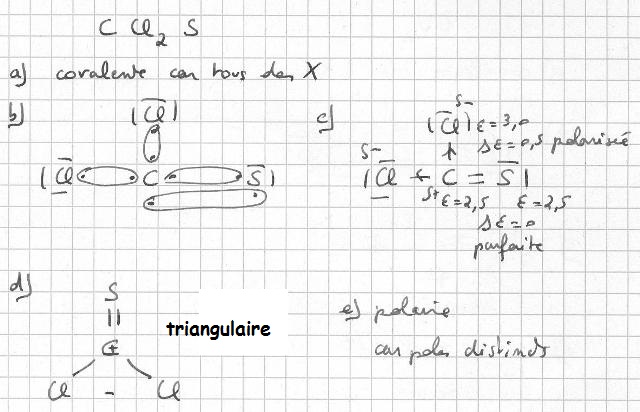 C Cl₂ S
a) covalente car tous des X
b)
|Cl|
|Cl C S|
c)
δ-
|Cl| ε=3,0
Δε=0,5 polarisée
δ-
|Cl C = S|
δ+ ε=2,5 ε=2,5
Δε=0
parfaite
d)
S
||
C+
Cl - Cl
triangulaire
e) polaire
car poles distincts